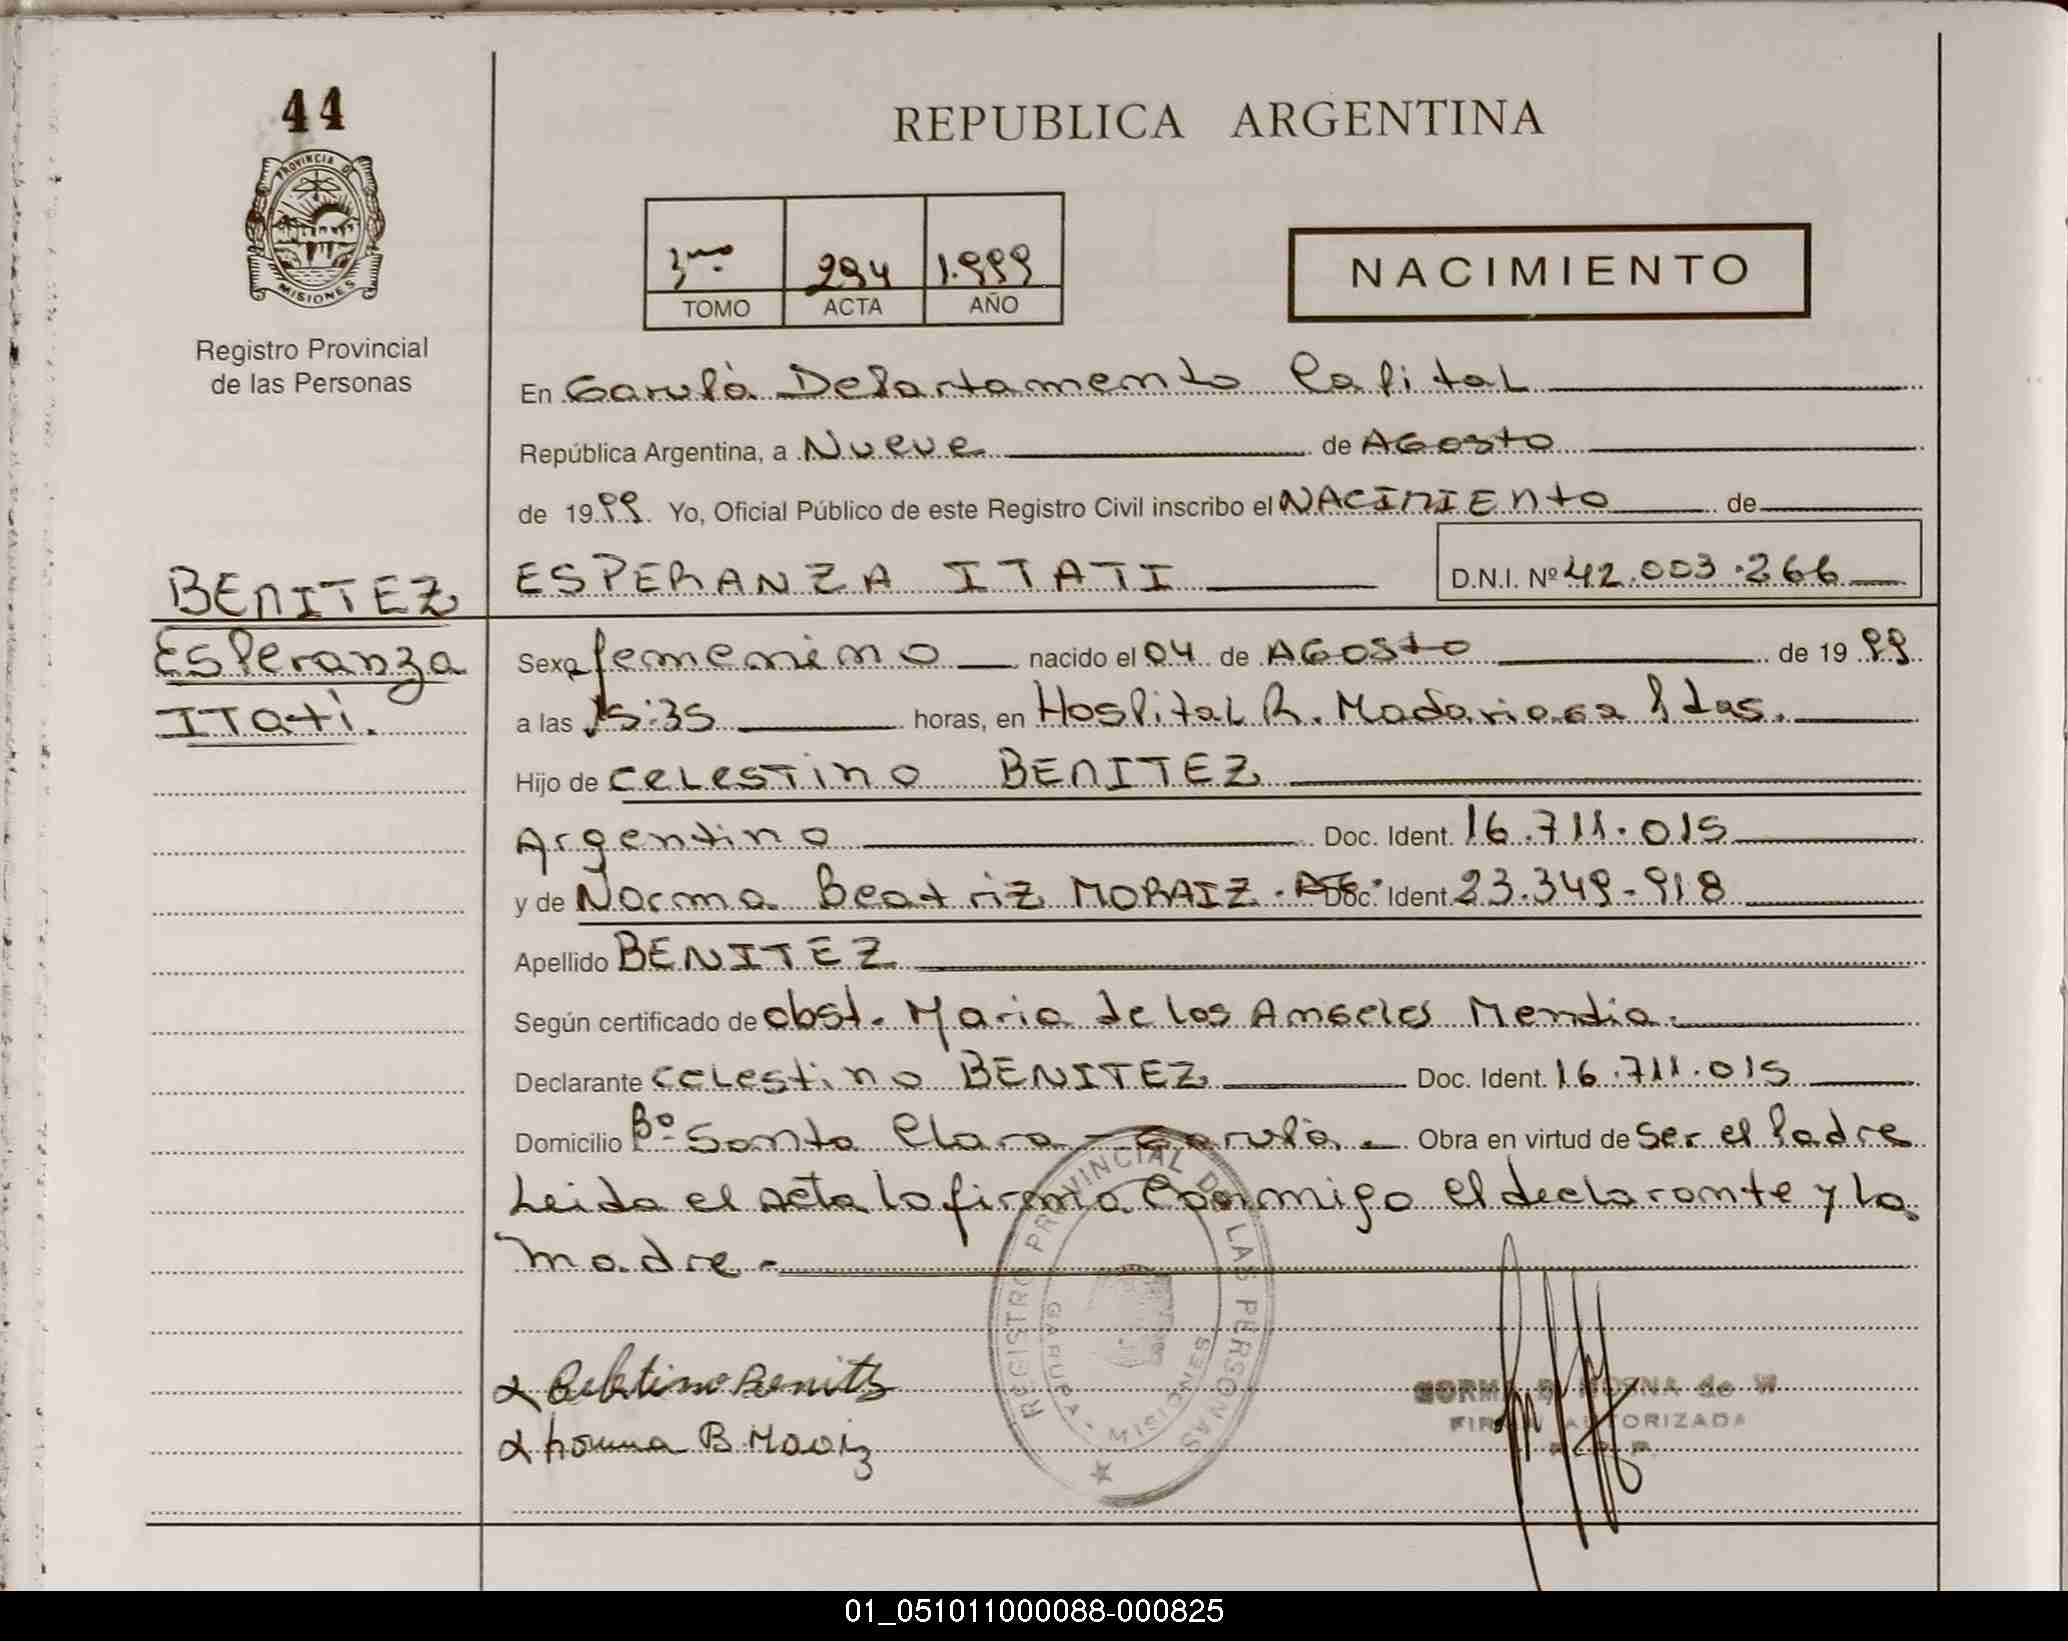 44
PROVINCIA DE
MISIONES
Registro Provincial
de las Personas
REPUBLICA ARGENTINA
3ro. 294 1.999
TOMO ACTA AÑO
NACIMIENTO
En Garupà Departamento Capital
República Argentina, a Nueve de AGosto
de 1999. Yo, Oficial Público de este Registro Civil inscribo el NACIMIENto de
BENITEZ
Esperanza
ITatí.
ESPERANZA ITATI D.N.I. Nº 42.003.266
Sexo femenino nacido el 04 de AGOSto de 1999
a las 15:35 horas, en Hospital R. Madariaga Pdas.
Hijo de CELESTino BENITEZ
Argentino Doc. Ident. 16.711.015
y de Norma Beatriz MORAIZ. Arg. Doc. Ident. 23.349-918
Apellido BENITEZ
Según certificado de obst. Maria de los Angeles Mendia.
Declarante Celestino BENITEZ Doc. Ident. 16.711.015
Domicilio Bº Santa Clara - Garupà. Obra en virtud de Ser el Padre
Leida el acta lo firma Conmigo el declarante y la
madre.-
REGISTRO PROVINCIAL DE LAS PERSONAS
GARUPA - MISIONES
Celestino Benitez
Norma B. Moraiz
FIRMA AUTORIZADA
01_051011000088-000825